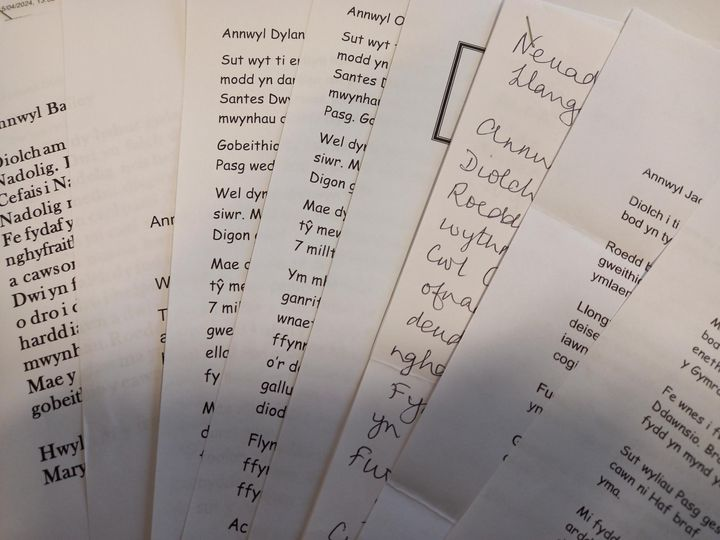 5/04/2024, 13:0
nnwyl Ba
Diolch am
Nadolig. I
Cefais i Na
Nadolig r
Fe fydaf y
nghyfrait
a cawsor
Dwi yn f
o dro i c
hardd i
mwynh
Mae y
gobeit
Hwyl
Mary
Ann
W
T
a
h
Annwyl Dylan
Sut wyt ti er
modd yn dar
Santes Dwy
mwynhau c
Gobeithic
Pasg wed
Wel dyr
siwr. M
Digon
Mae c
tŷ me
7 mil
gwe
ello
fy
M
d
Annwyl O
Sut wyt
modd yn
Santes D
mwynhau
Pasg. Go
Wel dyr
siwr. M
Digon g
Mae dy
tŷ mew
7 millt
Ym mh
ganrif
wnae
ffynr
o'r de
gallu
diod
Flyn
ffyr
ffy
Ac
Neuad
Llang
Annw
Diolch
Roedd
wythn
Cwl
ofna
deud
ngho
Fy
yn
Fw
C
Annwyl Jac
Diolch i ti
bod yn ty
Roedd t
gweithi
ymlaer
Llong
deise
iawn
cogi
Fu
yn
M
bod
eneth
y Gymra
Fe wnes i f
Ddawnsio. Bra
fydd yn mynd y
Sut wyliau Pasg ges
cawn ni Haf braf
yma.
Mi fydd
ard